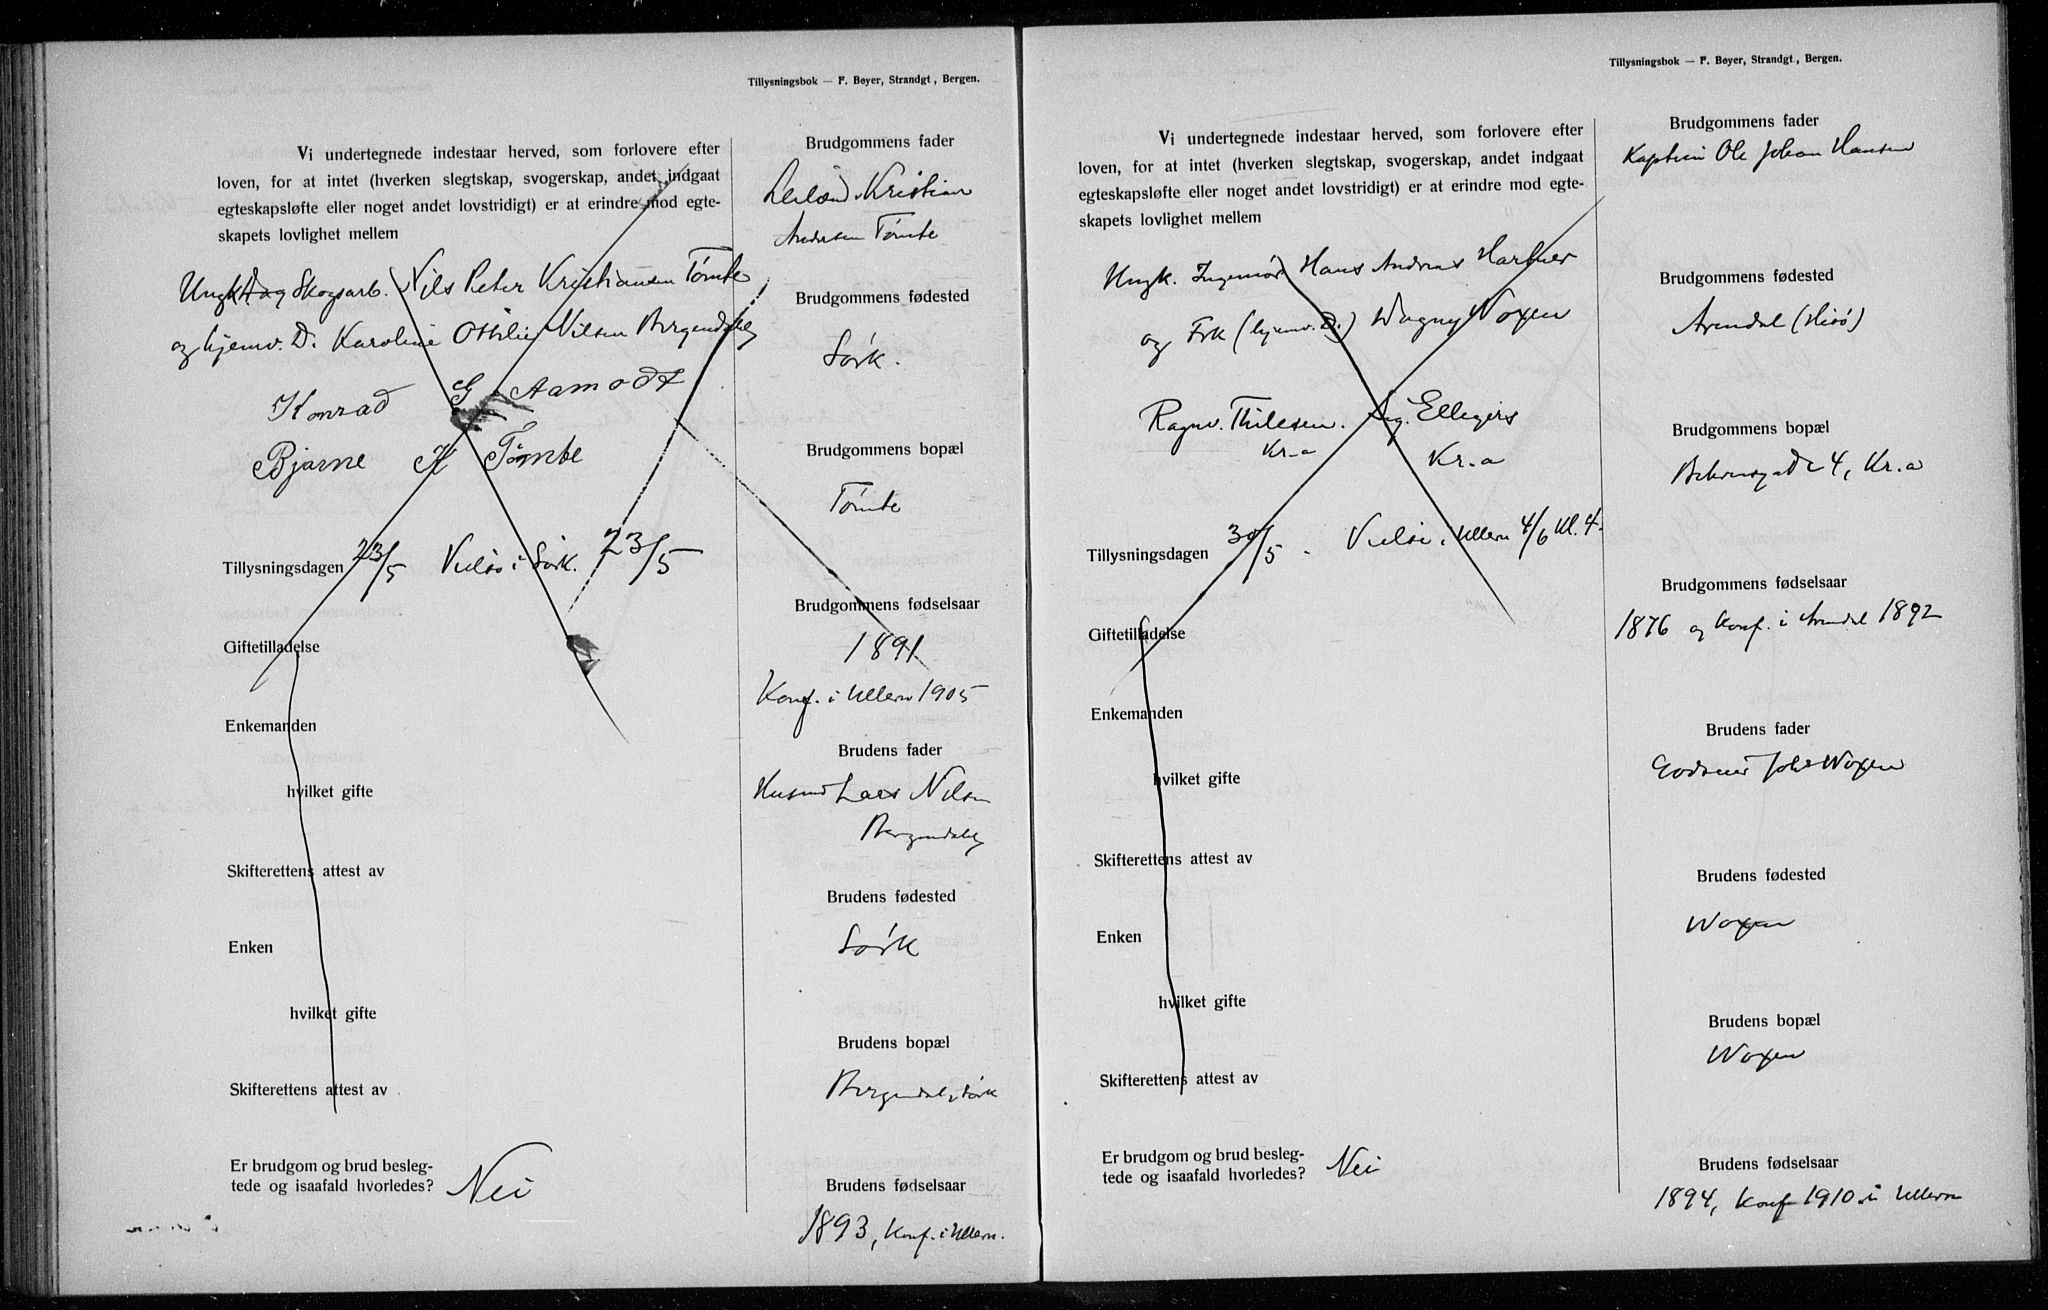 Tillysningsbok — F. Beyer, Strandgt., Bergen.
Vi undertegnede indestaar herved, som forlovere efter
loven, for at intet (hverken slegtskap, svogerskap, andet indgaat
egteskapsløfte eller noget andet lovstridigt) er at erindre mod egte-
skapets lovlighet mellem
Ungk. Skogsarb. Nils Peter Kristiansen Tømte
og hjemv. D. Karoline Othilie Nilsen Bergendahl
Konrad G Aamodt
Bjarne K Tømte
Tillysningsdagen 23/5 Vielse i Sørk. 23/5
Giftetilladelse
Enkemanden
hvilket gifte
Skifterettens attest av
Enken
hvilket gifte
Skifterettens attest av
Er brudgom og brud besleg-
tede og isaafald hvorledes? Nei
Brudgommens fader
Kristian
Andersen Tømte
Brudgommens fødested
Sørk.
Brudgommens bopæl
Tømte
Brudgommens fødselsaar
1891
Konf. i Ullern 1905
Brudens fader
Husmd Lars Nilsen
Bergendahl
Brudens fødested
Sørk
Brudens bopæl
Bergendal, Sørk
Brudens fødselsaar
1893, Konf. i Ullern.
Tillysningsbok — F. Beyer, Strandgt., Bergen.
Vi undertegnede indestaar herved, som forlovere efter
loven, for at intet (hverken slegtskap, svogerskap, andet indgaat
egteskapsløfte eller noget andet lovstridigt) er at erindre mod egte-
skapets lovlighet mellem
Ungk. Ingeniør Hans Andreas
og Frk (hjemv. D.) Wagny Woxen
Ragnv. Thilesen. Sig. Ellegers
Kr.a Kr.a
Tillysningsdagen 30/5 - Vielse i Ullern 4/6 Kl. 4-
Giftetilladelse
Enkemanden
hvilket gifte
Skifterettens attest av
Enken
hvilket gifte
Skifterettens attest av
Er brudgom og brud besleg-
tede og isaafald hvorledes? Nei
Brudgommens fader
Kaptein Ole Johan Hansen
Brudgommens fødested
Arendal (Hisø)
Brudgommens bopæl
4, Kr.a
Brudgommens fødselsaar
1876 og Konf. i Arendal 1892
Brudens fader
Godseier Johs Woxen
Brudens fødested
Woxen
Brudens bopæl
Woxen
Brudens fødselsaar
1894, Konf 1910 i Ullern